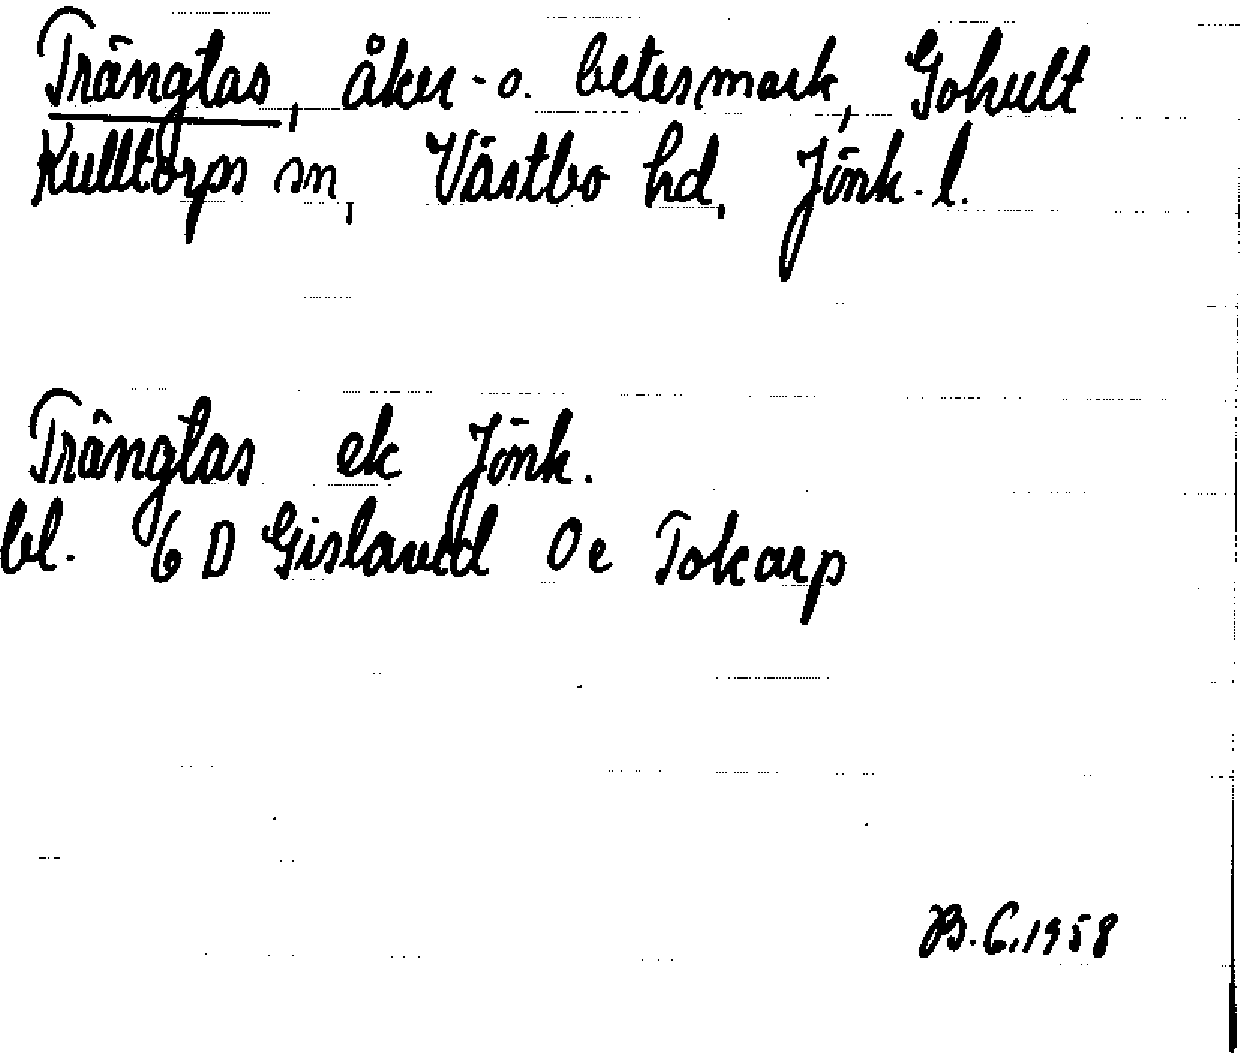 Trängtas, åker- o. betesmark, Gohult
Kulltorps sn, Västbo hd, Jönk. l.
Trängtas ek Jönk.
bl. 6 D Gislaved 0 e Tokarp
B.C. 1958